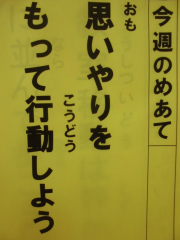 今週のめあて
おも
思いやりを
こうどう
もって行動しよう